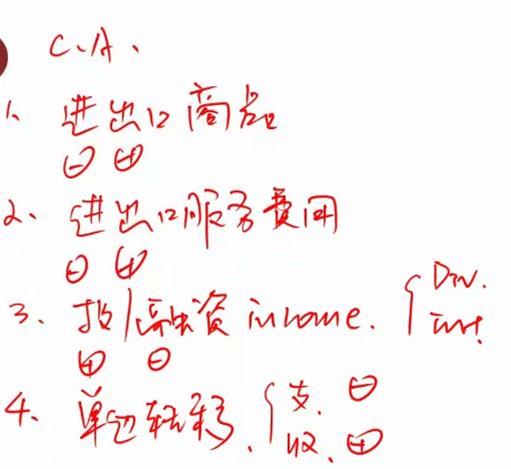 C.A.
1、进出口商品
⊖ ⊕
2、进出口服务费用
⊖ ⊕
3、投/融资 income. { Div.
Int.
⊕ ⊖
4、单边转移. { 支. ⊖
收. ⊕